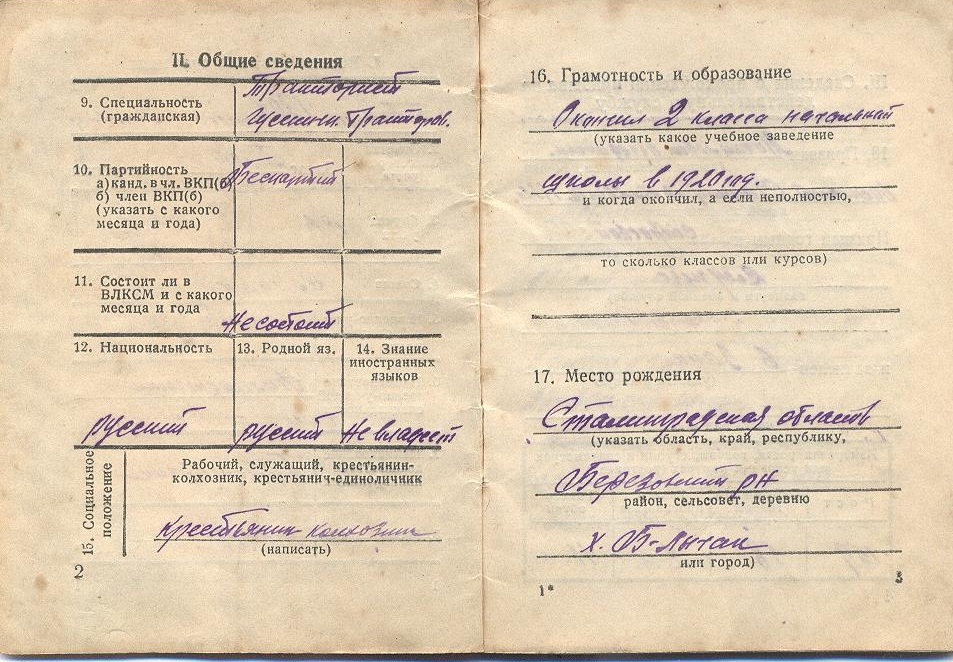 II. Общие сведения
9. Специальность
(гражданская)
Тракторист
гусенич. тракторов.
10. Партийность
а) канд. в чл. ВКП(б)
б) член ВКП(б)
(указать с какого
месяца и года)
Беспартий
11. Состоит ли в
ВЛКСМ и с какого
месяца и года
Не состоит
12. Национальность
русский
13. Родной яз.
русский
14. Знание
иностранных
языков
не владеет
15. Социальное
положение
Рабочий, служащий, крестьянин-
колхозник, крестьянин-единоличник
крестьянин колхозник
(написать)
2
16. Грамотность и образование
Окончил 2 класса начальной
(указать какое учебное заведение
школы в 1920 год.
и когда окончил, а если неполностью,
то сколько классов или курсов)
17. Место рождения
Сталинградская область
(указать область, край, республику,
Березовский рн
район, сельсовет, деревню
х. Б-Лычак
или город)
1*
3